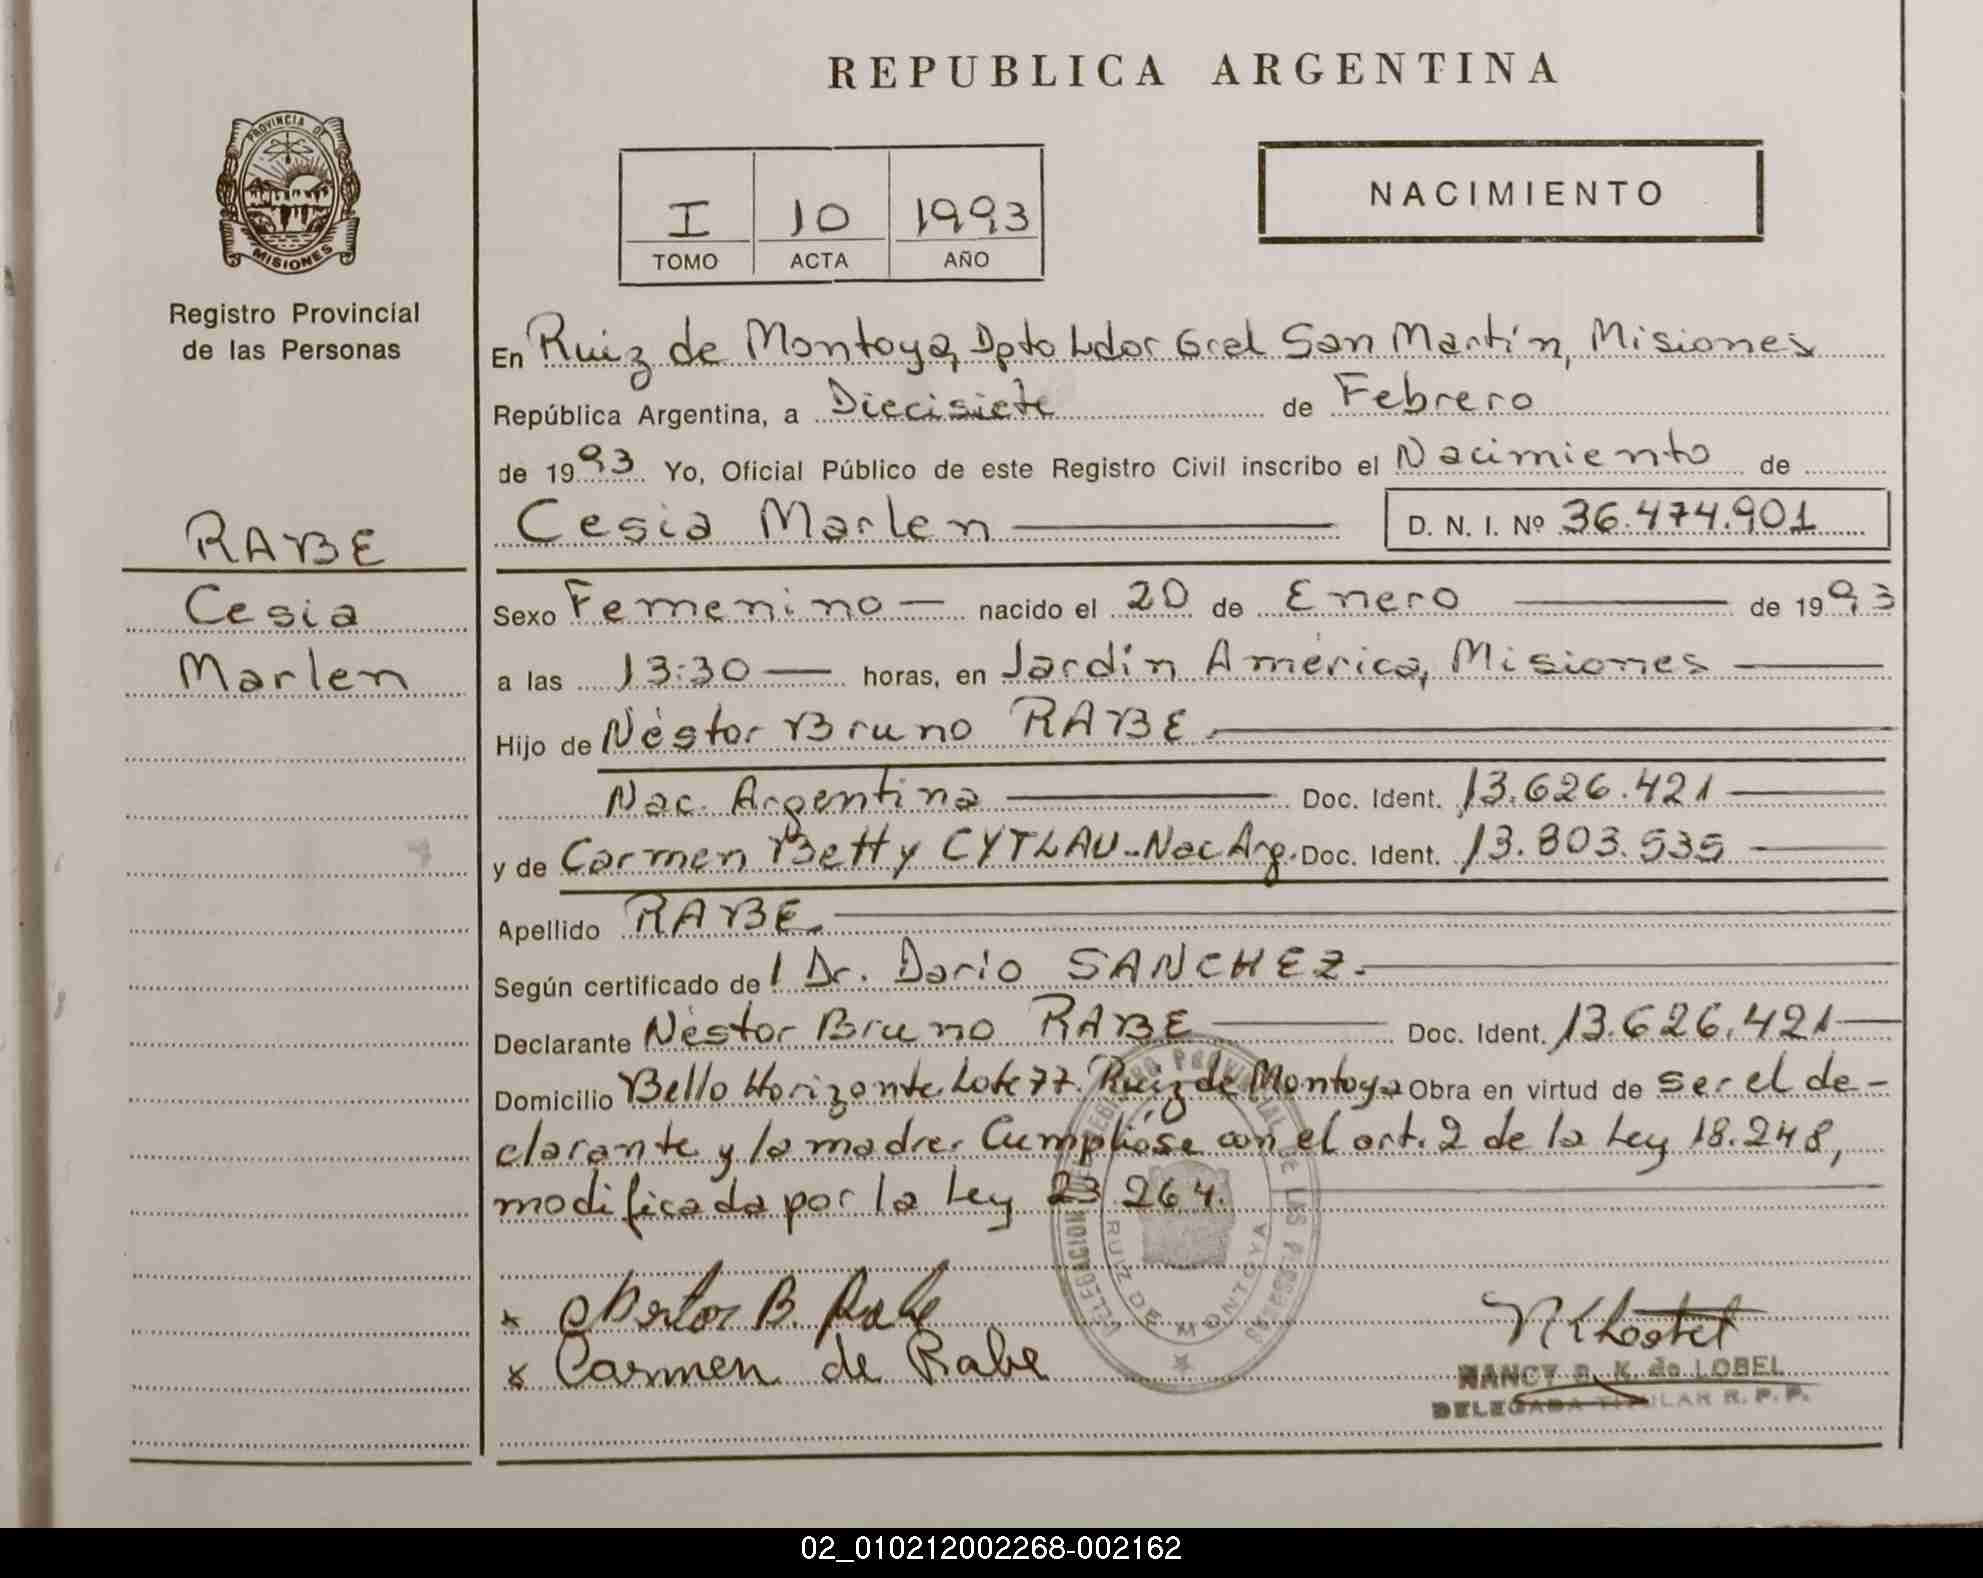 REPUBLICA ARGENTINA
PROVINCIA DE
MISIONES
Registro Provincial
de las Personas
I 10 1993
TOMO ACTA AÑO
NACIMIENTO
En Ruiz de Montoya, Dpto Ldor Gral San Martín, Misiones
República Argentina, a Diecisiete de Febrero
de 1993 Yo, Oficial Público de este Registro Civil inscribo el Nacimiento de
Cesia Marlen D. N. I. Nº 36.474.901
RABE
Cesia
Marlen
Sexo Femenino nacido el 20 de Enero de 1993
a las 13:30 horas, en Jardín América, Misiones
Hijo de Néstor Bruno RABE
Nac. Argentina Doc. Ident. 13.626.421
y de Carmen Betty CYTLAU-Nac Arg. Doc. Ident. 13.803.535
Apellido RABE
Según certificado del Dr. Darío SANCHEZ.
Declarante Néstor Bruno RABE Doc. Ident. 13.626.421
Domicilio Bello Horizonte Lote 77. Ruiz de Montoya Obra en virtud de ser el de-
clarante y la madre. Cumplióse con el art. 2 de la Ley 18.248,
modificada por la Ley 23.264.
DELEGACION REGISTRO PROVINCIAL DE LAS PERSONAS
RUIZ DE MONTOYA
x Nestor B. Rabe
x Carmen de Rabe
NANCY B. K. de LOBEL
DELEGADA TITULAR R. P. P.
02_010212002268-002162